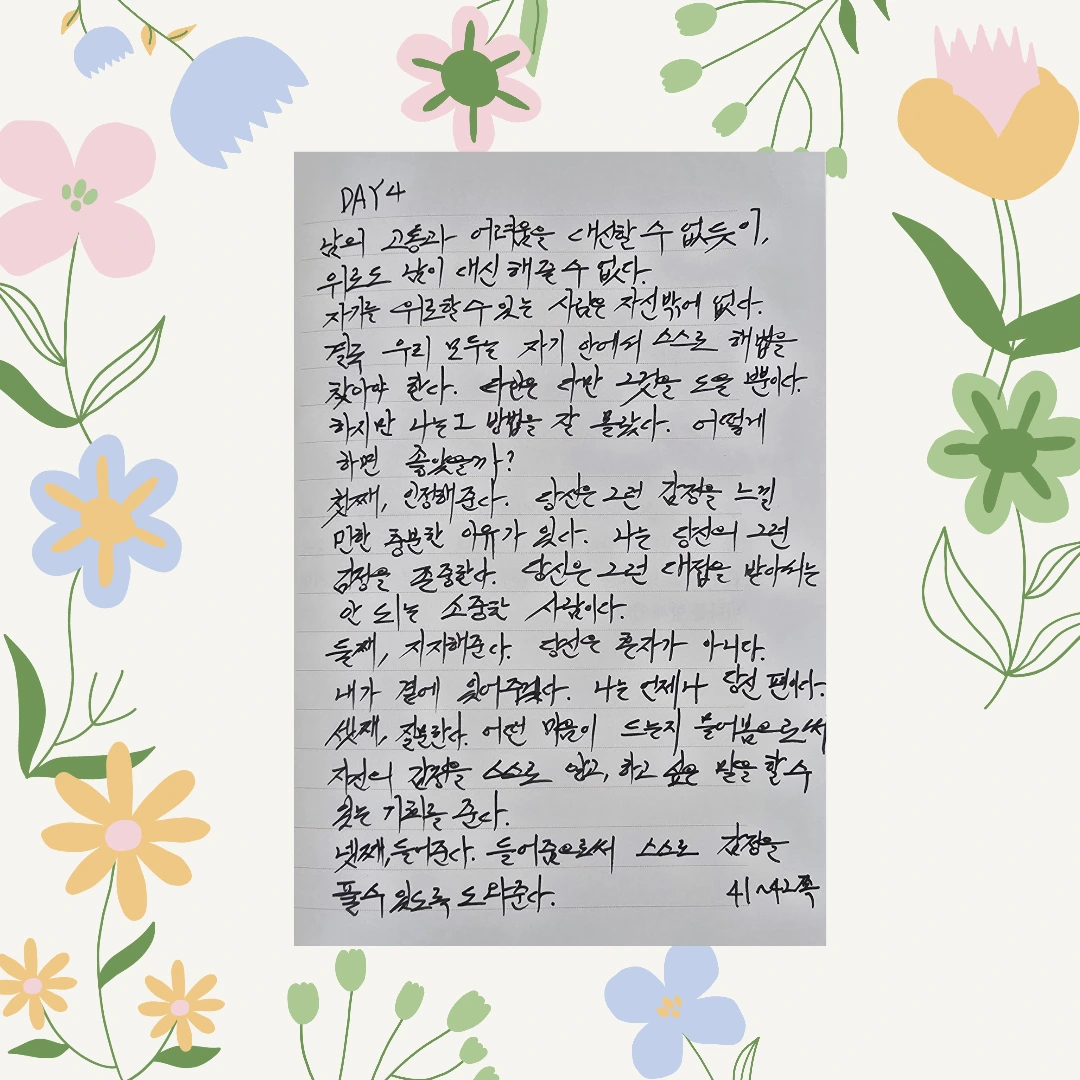 DAY4
남의 고통과 어려움을 대신할 수 없듯이,
위로도 남이 대신 해줄 수 없다.
자기를 위로할 수 있는 사람은 자신밖에 없다.
결국 우리 모두는 자기 안에서 스스로 해법을
찾아야 한다. 타인은 다만 그것을 도울 뿐이다.
하지만 나는 그 방법을 잘 몰랐다. 어떻게
하면 좋았을까?
첫째, 인정해준다. 당신은 그런 감정을 느낄
만한 충분한 이유가 있다. 나는 당신의 그런
감정을 존중한다. 당신은 그런 대접을 받아서는
안 되는 소중한 사람이다.
둘째, 지지해준다. 당신은 혼자가 아니다.
내가 곁에 있어주겠다. 나는 언제나 당신 편이다.
셋째, 질문한다. 어떤 마음이 드는지 물어봄으로써
자신의 감정을 스스로 알고, 하고 싶은 말을 할 수
있는 기회를 준다.
넷째, 들어준다. 들어줌으로써 스스로 감정을
풀 수 있도록 도와준다. 41~42쪽